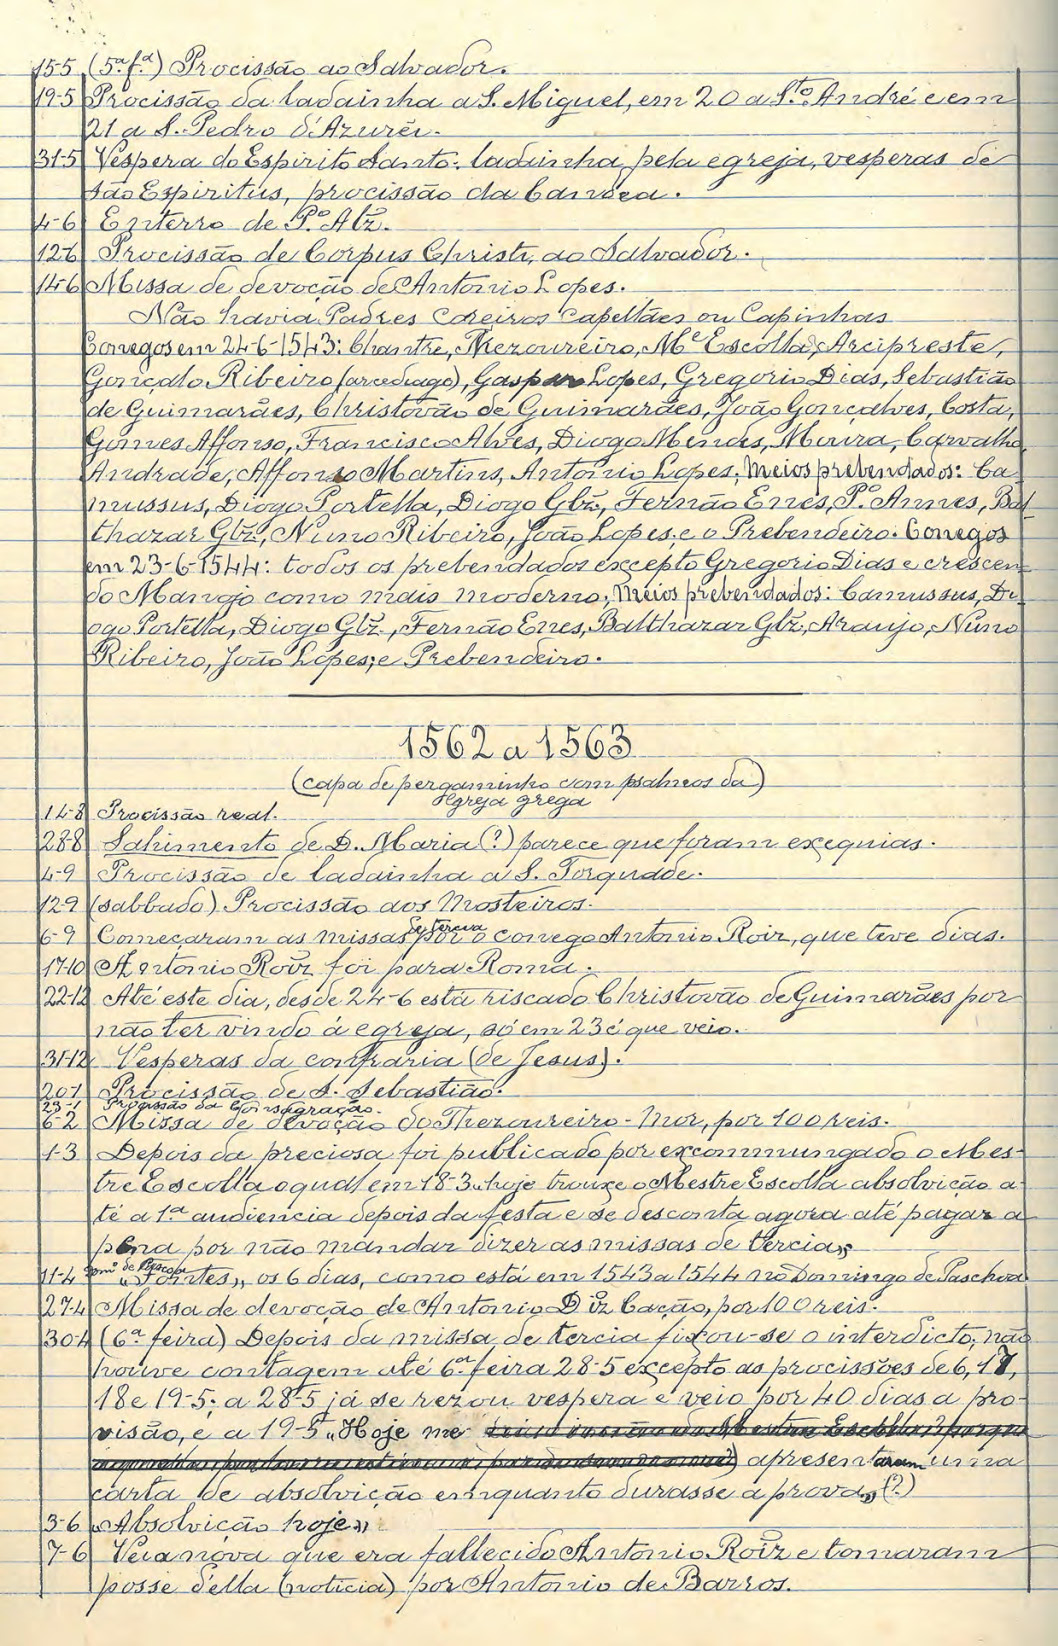 15-5 (5ª fª) Procissão ao Salvador.
19-5 Procissão da ladainha a S. Miguel, em 20 a S.to André e em
21 a S. Pedro d'Azurei.
31-5 Vespera do Espirito Santo: ladainha pela egreja, vesperas de
são Espiritus, procissão da Candea.
4-6 Enterro de P.º Alz.
12-6 Procissão de Corpus Christi, ao Salvador.
14-6 Missa de devoção de Antonio Lopes.
Não havia Padres Coreiros Capellães ou Capinhas
Conegos em 24-6-1543: Chantre, Thezoureiro, Me Escolla, Arcipreste,
Gonçalo Ribeiro (arcediago), Gaspar Lopes, Gregorio Dias, Sebastião
de Guimarães, Christovão de Guimarães, João Gonçalves, Costa,
Gomes Affonso, Francisco Alves, Diogo Mendes, Moura, Carvalho,
Andrade, Affonso Martins, Antonio Lopes; Meios prebendados: Ca-
mussus, Diogo Portella, Diogo Glz, Fernão Enes, P.º Annes, Bal-
thazar Glz, Nuno Ribeiro, João Lopes; e o Prebendeiro. Conegos
em 23-6-1544: todos os prebendados excepto Gregorio Dias e crescen-
do Manojo como mais moderno, Meios prebendados: Camussus, Di-
ogo Portella, Diogo Glz, Fernão Enes, Balthazar Glz, Araujo, Nuno
Ribeiro, João Lopes; e Prebendeiro.
1562 a 1563
(capa de pergaminho com psalmos da)
Egreja grega
14-8 Procissão real.
28-8 Sahimento de D. Maria (?) parece que foram exequias.
4-9 Procissão de ladainha a S. Torquade.
12-9 (sabbado) Procissão aos Mosteiros.
de tercia
6-9 Começaram as missas por o conego Antonio Roiz, que teve dias.
17-10 Antonio Roiz foi para Roma.
22-12 Até este dia, desde 24-6 está riscado Christovão de Guimarães por
não ter vindo á egreja, só em 23 é que veio.
31-12 Vesperas da confraria (de Jesus).
20-1 Procissão de S. Sebastião.
23-1 Procissão da Consagração.
6-2 Missa de devoção do Thezoureiro-Mor, por 100 reis.
1-3 Depois da preciosa foi publicado por excommungado o Mes-
tre Escolla o qual em 18-3 "hoje trouxe o Mestre Escolla absolvição a-
té a 1.ª audiencia depois da festa e se desconta agora até pagar a
pena por não mandar dizer as missas de tercia"
Domº de Pascoa
11-4 "Fontes" os 6 dias, como está em 1543 a 1544 no Domingo de Paschoa
27-4 Missa de devoção de Antonio Diz Cação, por 100 reis.
30-4 (6ª feira) Depois da missa de tercia fixou-se o interdicto; não
houve contagem até 6.ª feira 28-5 excepto as procissões de 6, 17,
18 e 19-5; a 28-5 já se rezou vespera e veio por 40 dias a pro-
visão, e a 19-5 "Hoje me
apresentaram uma
carta de absolvição emquanto durasse a prova" (?)
3-6 "Absolvição hoje"
7-6 Veia nova que era fallecido Antonio Roiz e tomaram
posse d'ella (noticia) por Antonio de Barros.